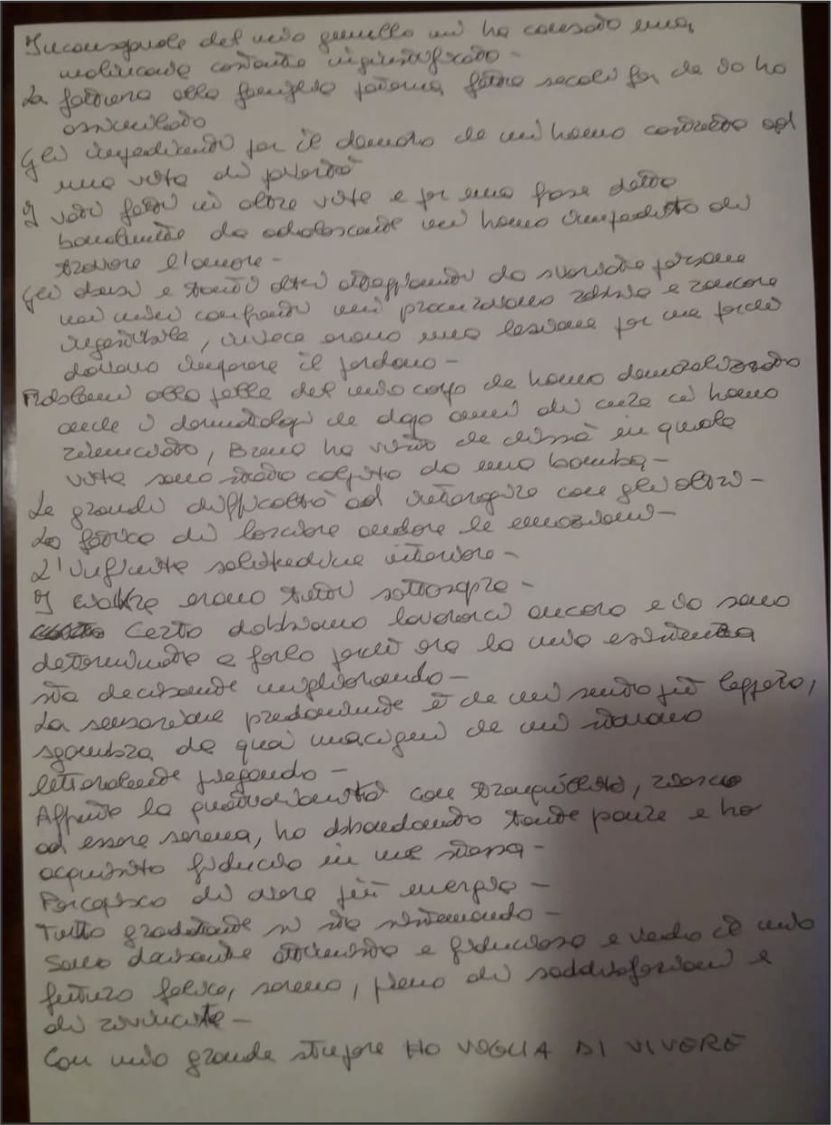 Inconsapevole del mio gemello mi ha causato una
malinconia costante ingiustificata -
La fattura alla famiglia paterna fatta secoli fa che io ho
assimilato
Gli impedimenti per il denaro che mi hanno costretto ad
una vita di povertà
I voti fatti in altre vite e per una frase detta
banalmente da adolescente mi hanno impedito di
trovare l'amore -
Gli abusi e tanti altri atteggiamenti da svariate persone
nei miei confronti mi procuravano rabbia e rancore
ingestibile, invece erano una lezione per me perché
dovevo imparare il perdono -
Problemi alla pelle del mio corpo che hanno demoralizzato
anche i dermatologi che dopo anni di cura ci hanno
rinunciato, Bruno ha visto che chissà in quale
vita sono stata colpita da una bomba -
Le grandi difficoltà ad interagire con gli altri -
La fatica di lasciare andare le emozioni -
L'infinita solitudine interiore -
I erano tutti sottosopra -
Certo dobbiamo lavorarci ancora e io sono
determinata a farlo perché ora la mia esistenza
sta decisamente migliorando -
La sensazione predominante è che mi sento più leggera,
sgombra da quei macigni che mi stavano
letteralmente piegando -
Affronto la quotidianità con tranquillità, riesco
ad essere serena, ho abbandonato tante paure e ho
acquisito fiducia in me stessa -
Percepisco di avere più energia -
Tutto gradatamente si sta sistemando -
Sono davvero ottimista e fiduciosa e vedo il mio
futuro felice, sereno, pieno di soddisfazioni e
di rivincite -
Con mio grande stupore HO VOGLIA DI VIVERE